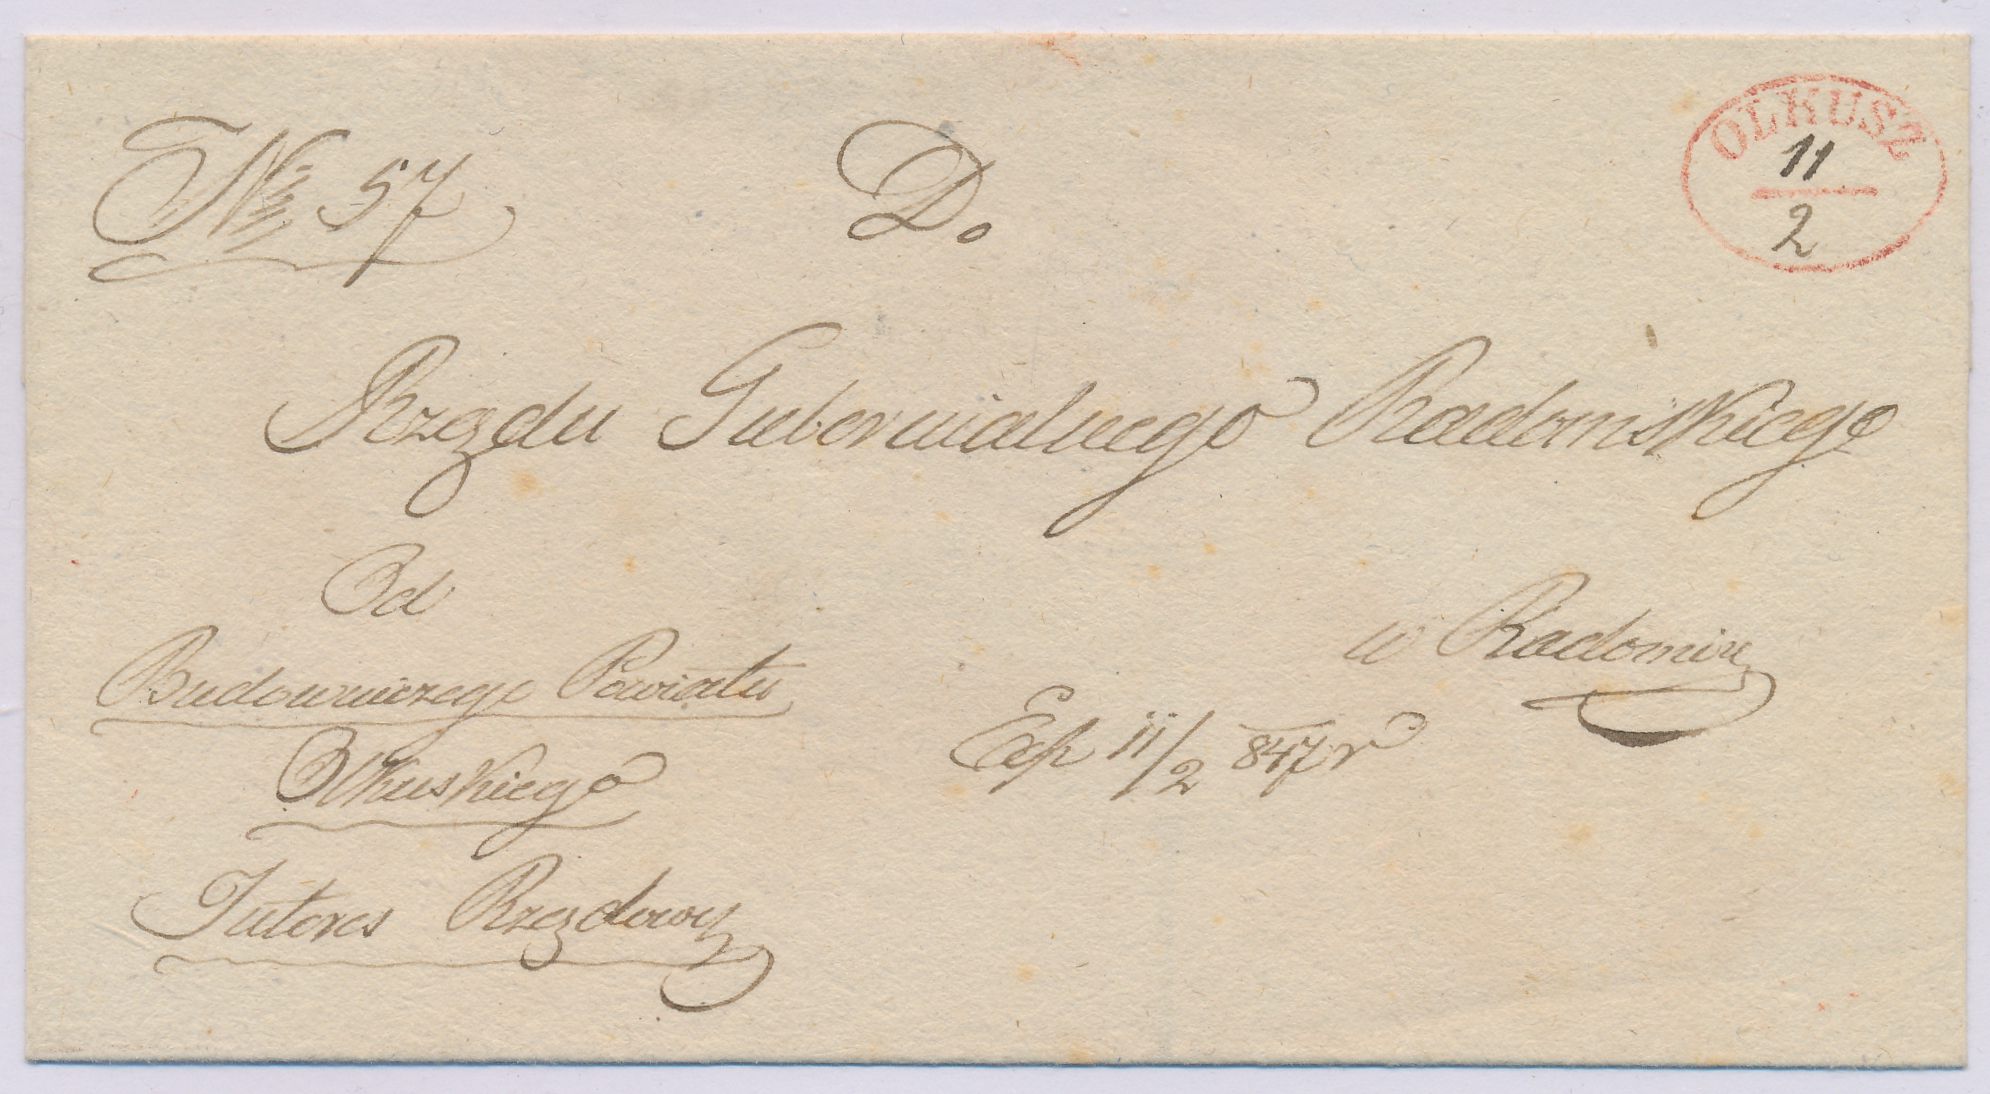 № 57
Do
OLKUSZ
11
2
Rządu Gubernialnego Radomskiego
Od
w Radomiu
Budowniczego Powiatu
Exp 11/2 847 r
Olkuskiego
Interes Rządowy